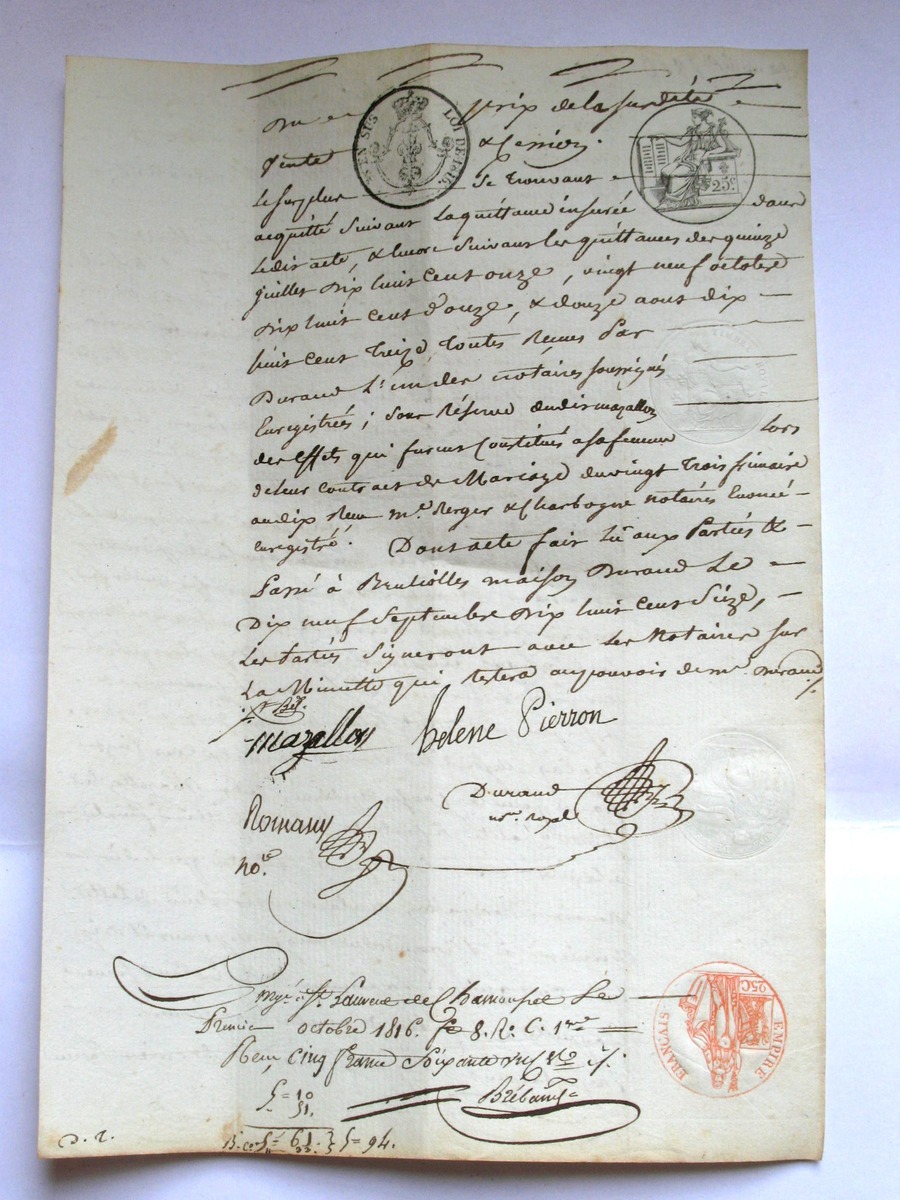 EN SUS LOI DE 1816.
25c
prix de la susdite
Vente & Cession.
Le surplus se trouvant
acquitté suivant la quittance insérée dans
ledit acte, & encore suivant les quittances des quinze
juillet dix huit cent onze, vingt neuf octobre
dix huit cent douze, & douze aout dix
huit cent treize, toutes reçues par
Durand L'un des notaires soussignés
Enregistrées; sous réserve dudit mazallon
des effets qui furent constitués a sa femme lors
de leur contract de Mariage du vingt trois frimaire
an dix Reçu me. Berger & Charbogne notaires
enregistré. Dont acte fait lû aux Parties &
Passé à Bruliolles maison Durand Le
Dix neuf Septembre dix huit cent Seize,
Les Parties Signeront avec Les Notaires sur
La Minutte qui restera au pouvoir de me. Durand
mazallon helene Pierron
Durand
nore. royal
Romany
no.e
St. Laurent de Chamousset Le
Premier octobre 1816. fo 8. Ro. C. 1re
Reçu, Cinq francs Soixante
Brébant
10
51.
61. 94.
D. R.
EMPIRE FRANÇAIS
25C